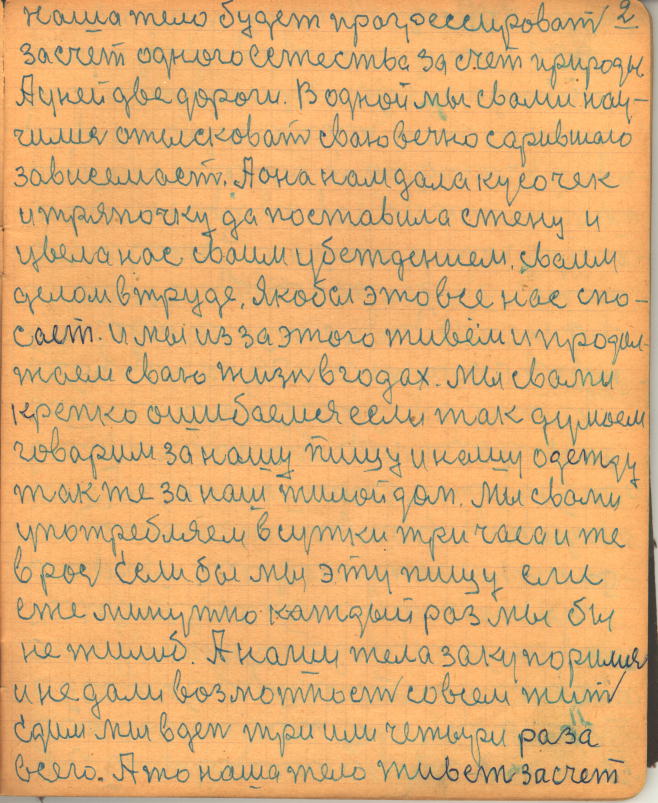 2
наша тело будет прогрессироват
за счет одного естества за счет природы.
А у ней две дороги. В одной мы свами нау-
чимся отысковат сваю вечно
зависемаст. А она нам дала кусочек
и тряпочку да поставила стену и
увела нас сваим убеждением, сваим
делом в труде, якобы это все нас спо-
сает. и мы из за этого живем и продал-
жаем сваю жизн в годах. мы свами
крепко ошибаемся если так думаем
говарим за нашу пищу и нашу одежду
также за наш жилой дом. Мы свами
употребляем в сутки три часа и же
в рот если бы мы эту пищу ели
еже минутно каждый раз мы бы
не жилиб. А наши тела закупорился
и не дали возможност совсем жит
едим мы в ден три или четыри раза
всего. А то наша тело живет за счет